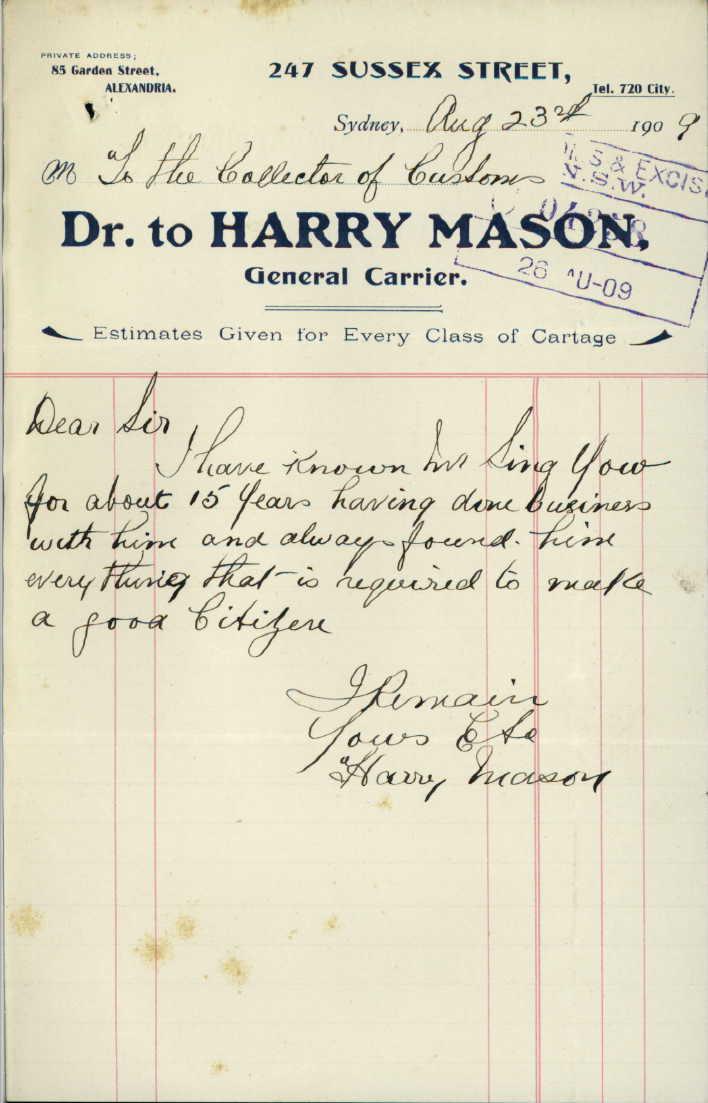 PRIVATE ADDRESS;
85 Garden Street,
ALEXANDRIA.
247 SUSSEX STREET,
Tel. 720 City.
Sydney, Aug 23rd 1909
M "To the Collector of Customs
S & EXCIS
N.S.W.
26 AU-09
Dr. to HARRY MASON,
General Carrier.
Estimates Given for Every Class of Cartage
Dear Sir
I have known Mr Sing Yow
for about 15 Years having done business
with him and always found. him
every thing that is required to make
a good Citizen
I Remain
Yours Etc
"Harry Mason